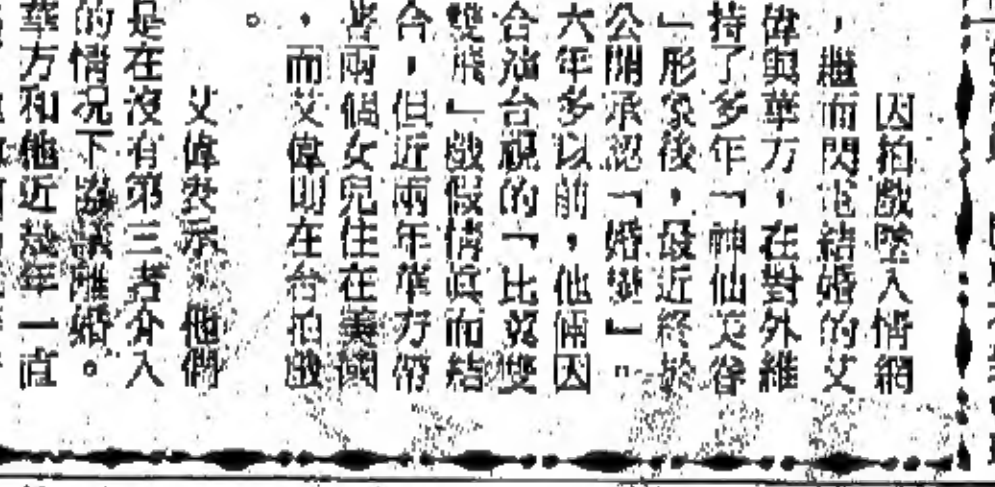 因拍戲墜入情網
，繼而閃電結婚的艾
偉與華方，在對外維
持了多年「神仙美眷
」形象後，最近終於
公開承認「婚變」。
六年多以前，他倆因
合演台視的「比翼雙
雙飛」戲假情眞而結
合，但近兩年華方帶
著兩個女兒住在美國
，而艾偉則在台拍戲
。
艾偉表示，他們
是在沒有第三者介入
的情况下協議離婚。
華方和他近幾年一直